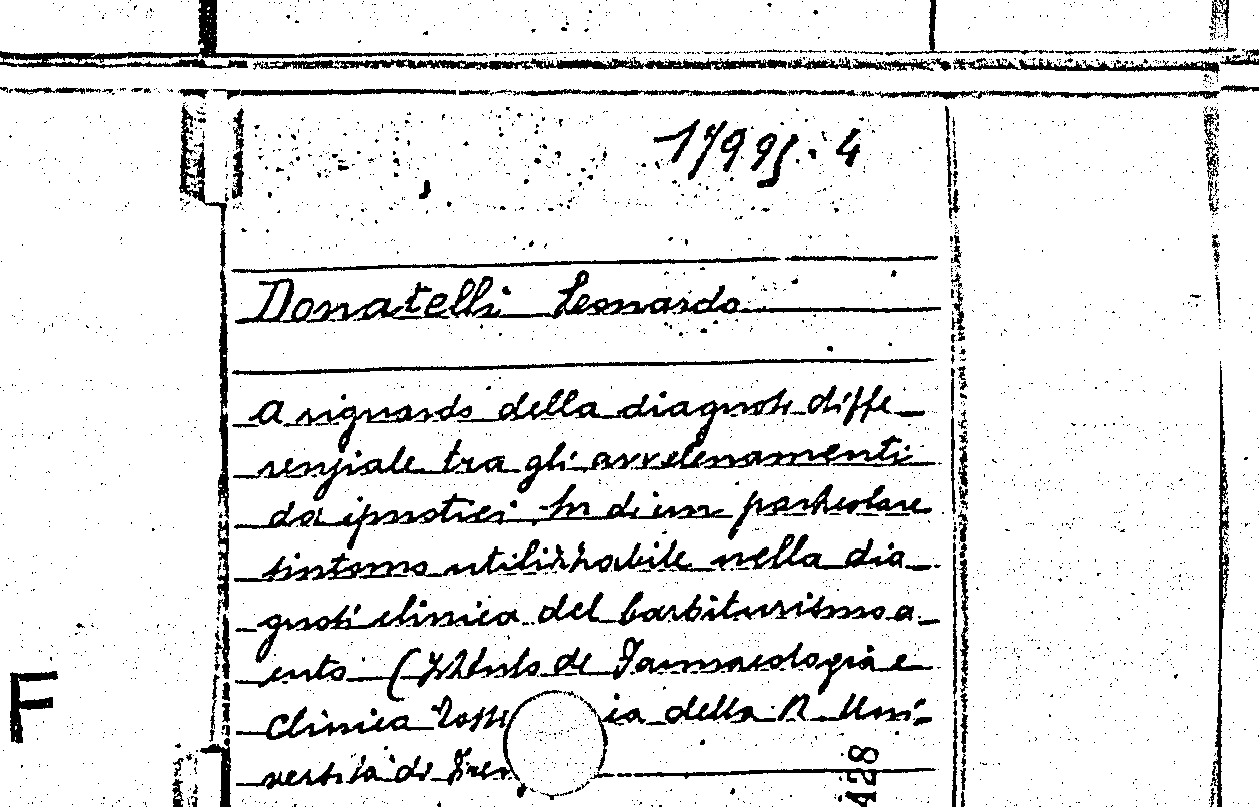 17995.4
Donatelli Leonardo
A riguardo della diagnosi diffe-
renziale tra gli avvelenamenti
da ipnotici. In di un particolare
sintomo utilizzabile nella dia-
gnosi clinica del barbiturismo a-
cuto (Istituto di Farmacologia e
Clinica Toss ia della R. Uni-
versità di Firen
F
428